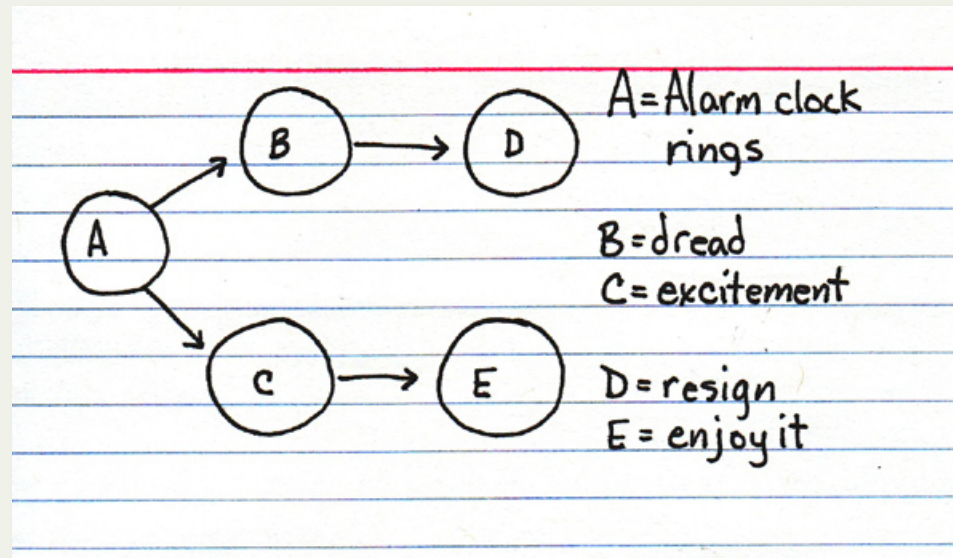 A
B
D
C
E
A=Alarm clock
rings
B=dread
C=excitement
D=resign
E=enjoy it